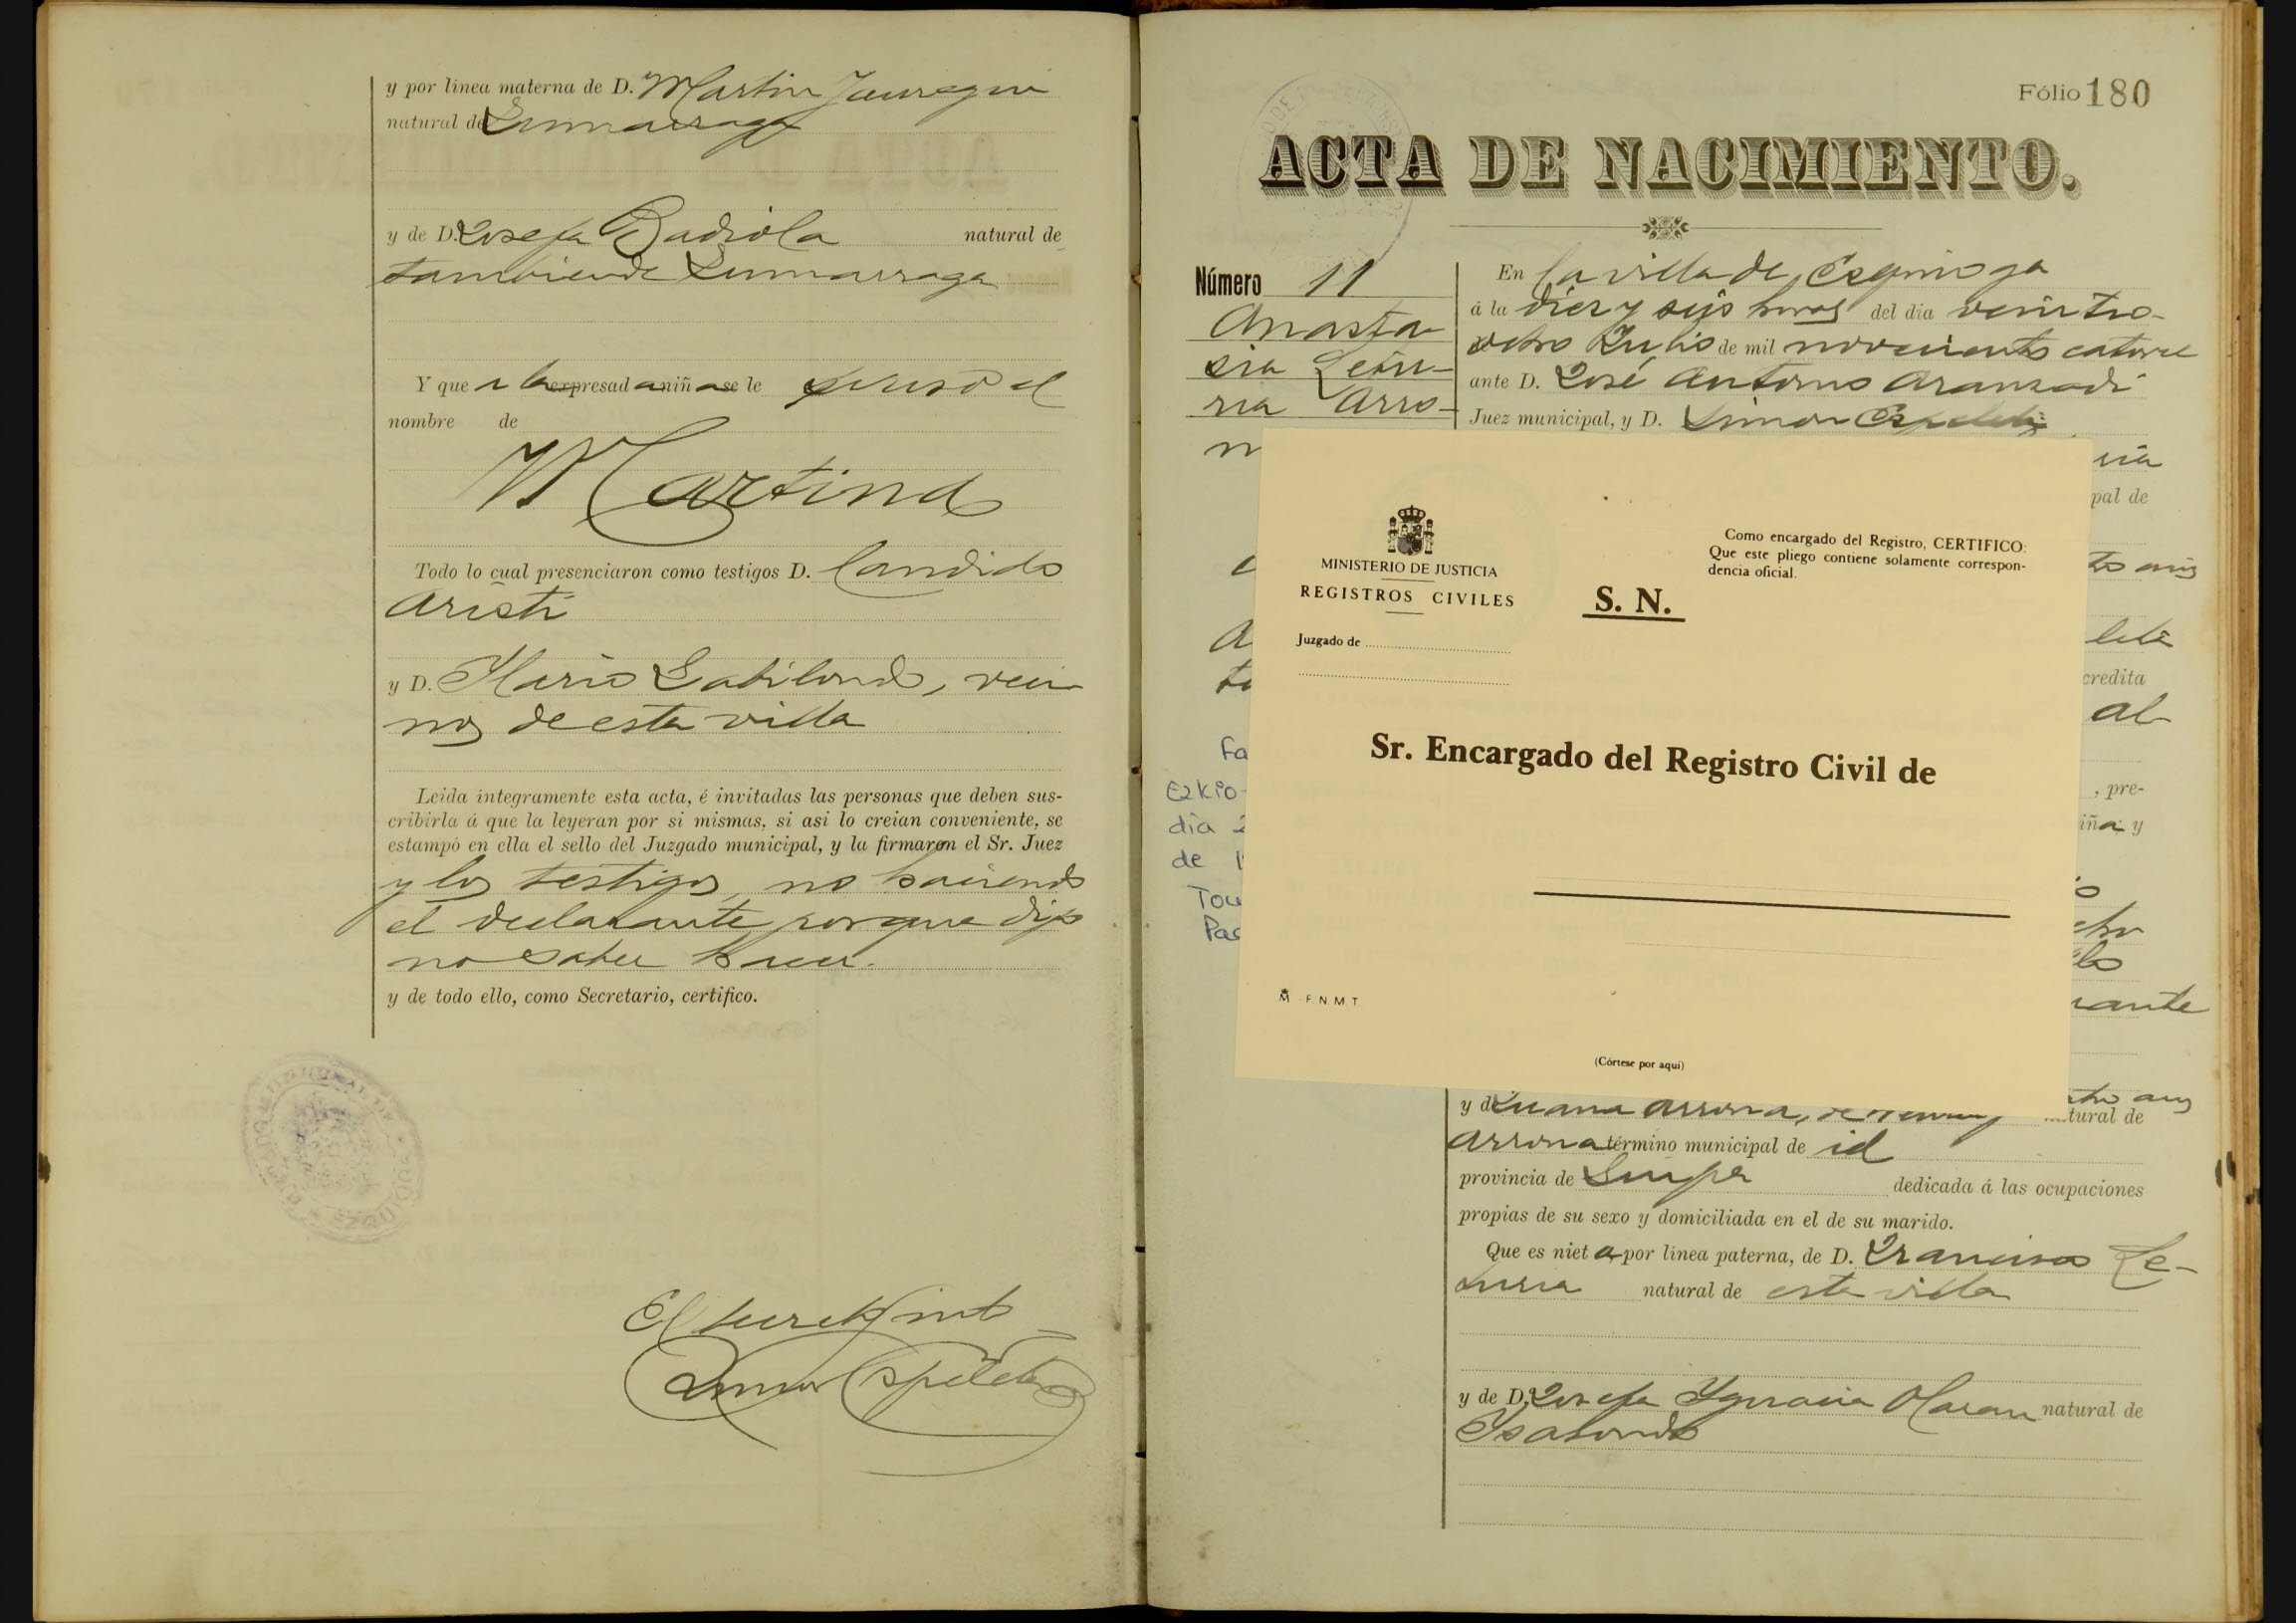 y por linea materna de D. Martin Jauregui
natural de Zumarraga
y de D. Josefa Badiola natural de
tambien de Zumarraga
Y que a la expresada niña se le puso el
nombre de
Martina
Todo lo cual presenciaron como testigos D. Candido
Aristi
y D. Hario Gabilondo, veci
nos de esta villa
Leida íntegramente esta acta, é invitadas las personas que deben sus-
cribirla á que la leyeran por si mismas, si asi lo creian conveniente, se
estampó en ella el sello del Juzgado municipal, y la firmaron el Sr. Juez
y los testigos, no haciendo
el declarante porque dijo
no saber hacer.
y de todo ello, como Secretario, certifico.
Simon Espelda
Fólio 180
ACTA DE NACIMIENTO.
Número 11
Anasta-
sia Letu-
ria Arro-
n
En la villa de Ezquioga
á la diez y seis horas del dia veintio-
ocho Julio de mil novecientos catorce
ante D. José Antonio Aranzadi
Juez municipal, y D. Simon Espelda
pal de
credita
al
, pre-
iña y
Fa
Ezkio-
día 2
de 1
Tou
Pag
MINISTERIO DE JUSTICIA
REGISTROS CIVILES
Juzgado de
S. N.
Como encargado del Registro, CERTIFICO:
Que este pliego contiene solamente correspon-
dencia oficial.
Sr. Encargado del Registro Civil de
F. N. M. T.
(Córtese por aquí)
rante
y d Juana Arrona, de tural de
Arrona término municipal de id
provincia de Guipa dedicada á las ocupaciones
propias de su sexo y domiciliada en el de su marido.
Que es nieta por linea paterna, de D. Francisco Le-
turia natural de esta villa
y de D. Josefa Ygnacia Olaran natural de
Ysasondo